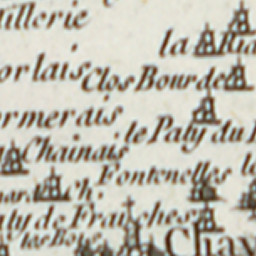 illerie
la Ria
orlais Clos Bourde
ormerais
le Paty du
Chainais
Fontenelles
Ch.
aty de Franches
les Boë
Chav